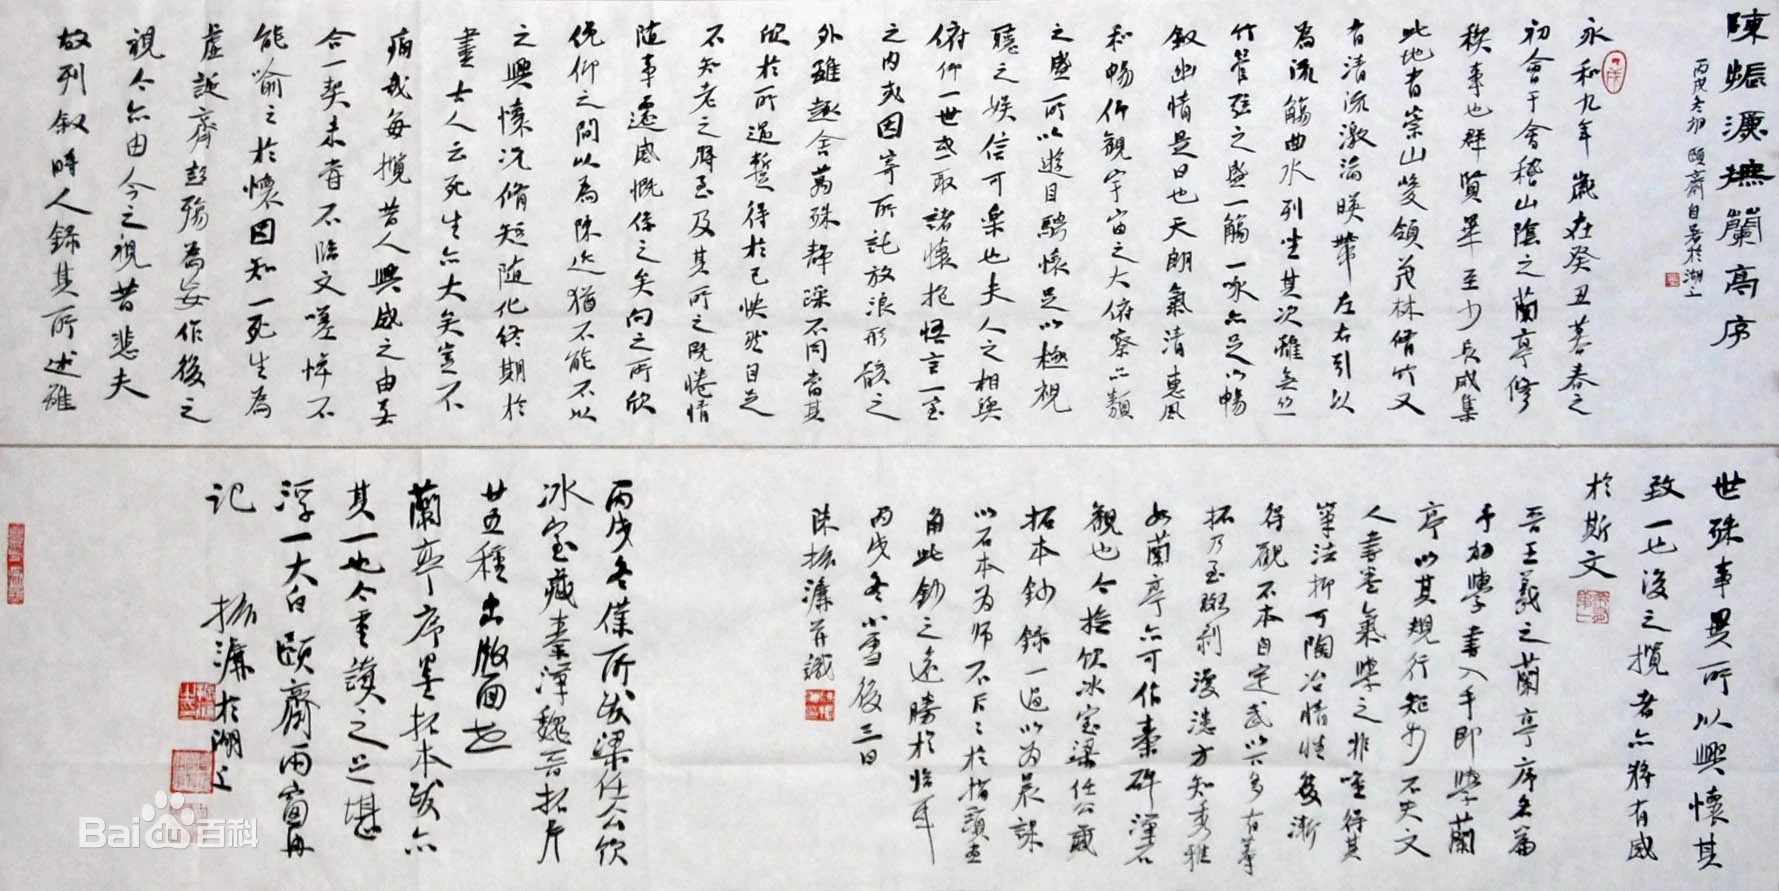 陳振濂撫蘭亭序
丙戌冬初頤齋自署於湖上
永和九年歲在癸丑暮春之
初會于會稽山陰之蘭亭修
稧事也群賢畢至少長咸集
此地有崇山峻領茂林脩竹又
有清流激湍暎帶左右引以
為流觴曲水列坐其次雖無絲
竹管弦之盛一觴一詠亦足以暢
敘幽情是日也天朗氣清惠風
和暢仰觀宇宙之大俯察品類
之盛所以遊目騁懷足以極視
聽之娛信可樂也夫人之相與
俯仰一世或取諸懷抱悟言一室
之內或因寄所託放浪形骸之
外雖趣舍萬殊靜躁不同當其
欣於所遇蹔得於己怏然自足
不知老之將至及其所之既惓情
隨事遷感慨係之矣向之所欣
俛仰之間以為陳迹猶不能不以
之興懷況脩短隨化終期於
盡古人云死生亦大矣豈不
痛哉每攬昔人興感之由若
合一契未嘗不臨文嗟悼不
能喻之於懷固知一死生為
虛誕齊彭殤為妄作後之
視今亦由今之視昔悲夫
故列敘時人錄其所述雖
世殊事異所以興懷其
致一也後之攬者亦將有感
於斯文
晉王羲之蘭亭序名篇
予初學書入手即學蘭
亭以其規行矩步不失文
人書卷氣學之非唯得其
筆法抑可陶冶情性後漸
得觀不本自定武以下多有摹
拓乃至斑剝漫漶方知秀雅
如蘭亭亦可作秦碑漢石
觀也今撿飲冰室梁任公藏
拓本鈔錄一過以為晨課
以石本為師不斤斤於指頭畫
角此鈔之遠勝於臨耳
丙戌冬小雪後三日
陳振濂並識
丙戌冬僕所跋梁任公飲
冰室藏秦漢魏晉拓片
廿五種出版面世
蘭亭序墨拓本跋亦
其一也今重讀之足堪
浮一大白頤齋雨窗再
記 振濂於湖上
Baidu百科